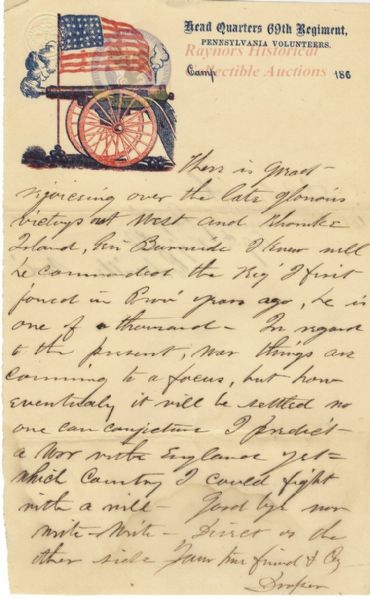 Head Quarters 69th Regiment,
PENNSYLVANIA VOLUNTEERS.
Raynors Historical
Collectible Auctions
Camp 186
There is great
rejoicing over the late glorious
victorys out West and Roanoke
Island, Gen Burnside I knew well
he commanded the Reg I first
joined in Prov years ago, he is
one of a thousand - In regard
to the present, war things are
comming to a focus, but how
eventualy it will be settled no
one can conjecture I predict
a War with England yet -
which Country I could fight
with a will - Good bye now
Write - Write - Direct as the
other side Your true friend &
Draper